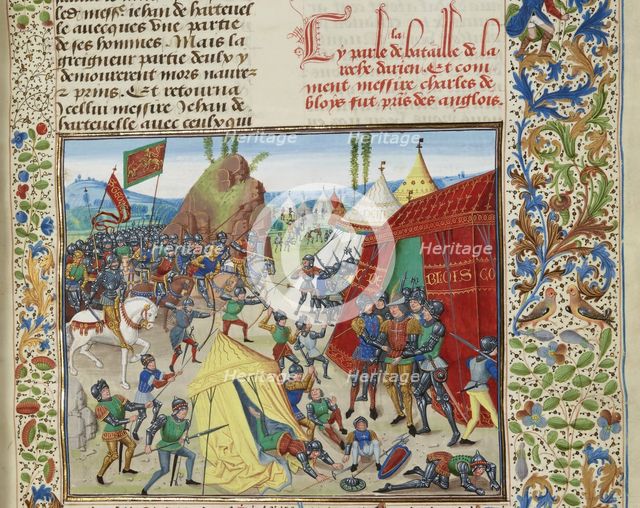 les messe iehan de hartevel
le avecques une partie
de ses hommes. Mais la
greigneur partie deulx y
demourerent mors navrez
z prins. Et retourna
icellui messire Jehan de
hartevelle avec ceulx qui
la
Cy parle de bataille de la
roche darien. Et com
ment messire charles de
bloys fut prīs des anglois.
BLOIS CO
Heritage
Heritage
Heritage
Heritage
Heritage
Heritage